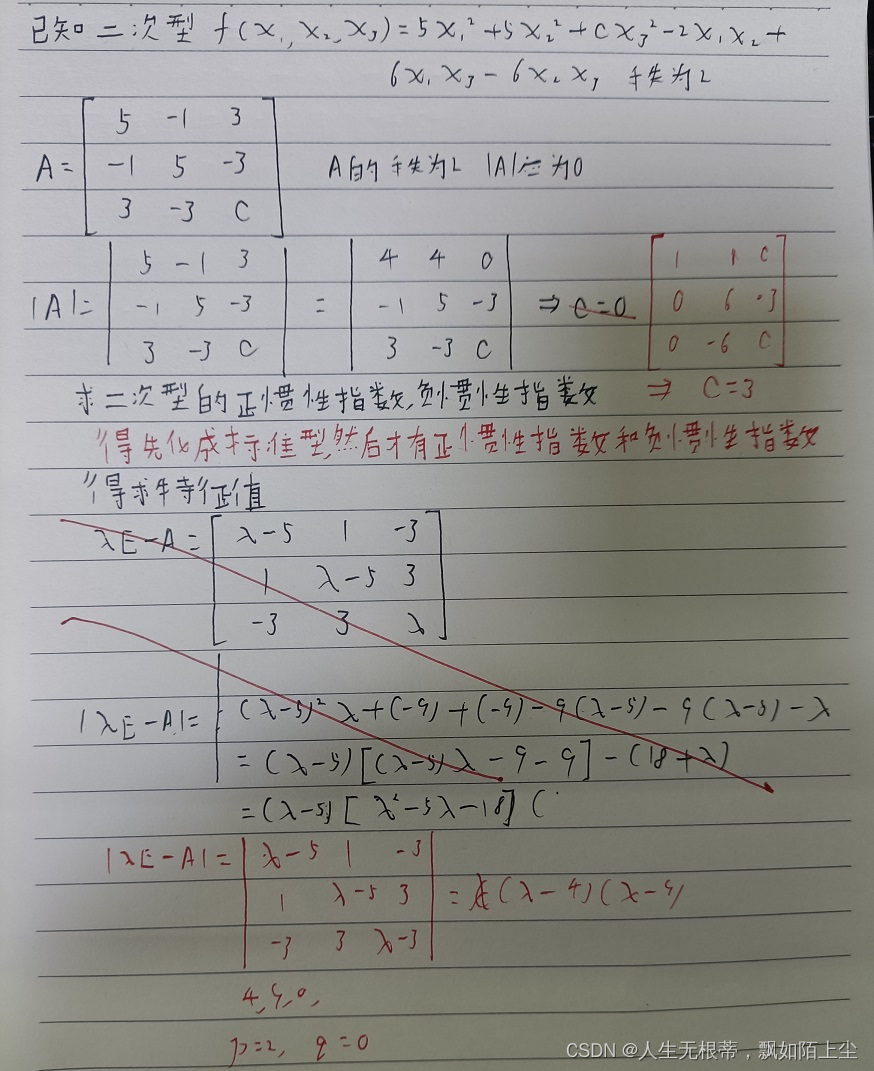 已知二次型 f(x₁,x₂,x₃)=5x₁²+5x₂²+cx₃²-2x₁x₂+
6x₁x₃-6x₂x₃ 秩为2
A= [ 5 -1 3
-1 5 -3
3 -3 C ]
A的秩为2 |A|=为0
|A|= | 5 -1 3
-1 5 -3
3 -3 C |
= | 4 4 0
-1 5 -3
3 -3 C |
⇒ C=0
[ 1 1 C
0 6 -3
0 -6 C ]
⇒ C=3
求二次型的正惯性指数,负惯性指数
得先化成标准型,然后才有正惯性指数和负惯性指数
得求特征值
λE-A= [ λ-5 1 -3
1 λ-5 3
-3 3 λ ]
|λE-A|= (λ-5)²λ+(-9)+(-9)-9(λ-5)-9(λ-5)-λ
=(λ-5)[(λ-5)λ-9-9]-(18+λ)
=(λ-5)[λ²-5λ-18](
|λE-A|= | λ-5 1 -3
1 λ-5 3
-3 3 λ-3 |
=λ(λ-4)(λ-9)
4,9,0,
p=2, q=0
CSDN @人生无根蒂,飘如陌上尘